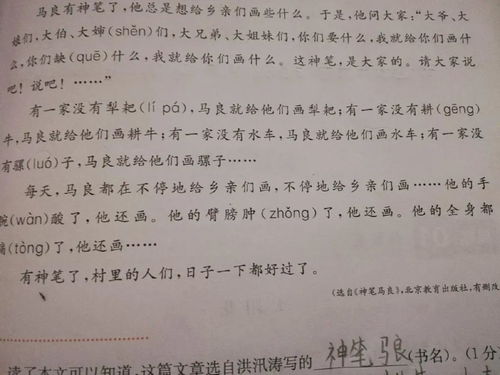 马良有神笔了，他总是想给乡亲们画些什么。于是，他问大家：“大爷、大
娘们，大伯、大婶(shěn)们，大兄弟、大姐妹们，你们要什么，我就给你们画什
么，你们缺(quē)什么，我就给你们画什么。这神笔，是大家的。请大家说
吧！说吧！……”
有一家没有犁耙(lí pá)，马良就给他们画犁耙；有一家没有耕(gēng)
牛，马良就给他们画耕牛；有一家没有水车，马良就给他们画水车；有一家没
有骡(luó)子，马良就给他们画骡子……
每天，马良都在不停地给乡亲们画，不停地给乡亲们画……他的手
腕(wàn)酸了，他还画。他的臂膀肿(zhǒng)了，他还画。他的全身都
痛(tòng)了，他还画……
有神笔了，村里的人们，日子一下都好过了。
(选自《神笔马良》，北京教育出版社，有删改
读了本文可以知道，这篇文章选自洪汛涛写的 神笔马良(书名)。(1分